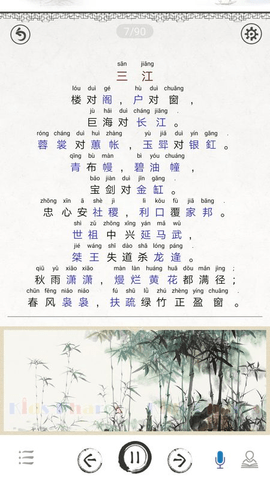 7/90
sān jiāng
三 江
lóu duì gé hù duì chuāng
楼 对 阁 ， 户 对 窗 ，
jù hǎi duì cháng jiāng
巨 海 对 长 江 。
róng cháng duì huì zhàng yù jiǎ duì yín gāng
蓉 裳 对 蕙 帐 ， 玉 斝 对 银 釭 。
qīng bù màn bì yóu chuáng
青 布 幔 ， 碧 油 幢 ，
bǎo jiàn duì jīn gāng
宝 剑 对 金 缸 。
zhōng xīn ān shè jì lì kǒu fù jiā bāng
忠 心 安 社 稷 ， 利 口 覆 家 邦 。
shì zǔ zhōng xīng yán mǎ wǔ
世 祖 中 兴 延 马 武 ，
jié wáng shī dào shā lóng páng
桀 王 失 道 杀 龙 逄 。
qiū yǔ xiāo xiāo màn làn huáng huā dōu mǎn jìng
秋 雨 潇 潇 ， 熳 烂 黄 花 都 满 径 ；
chūn fēng niǎo niǎo fú shū lǜ zhú zhèng yíng chuāng
春 风 袅 袅 ， 扶 疏 绿 竹 正 盈 窗 。